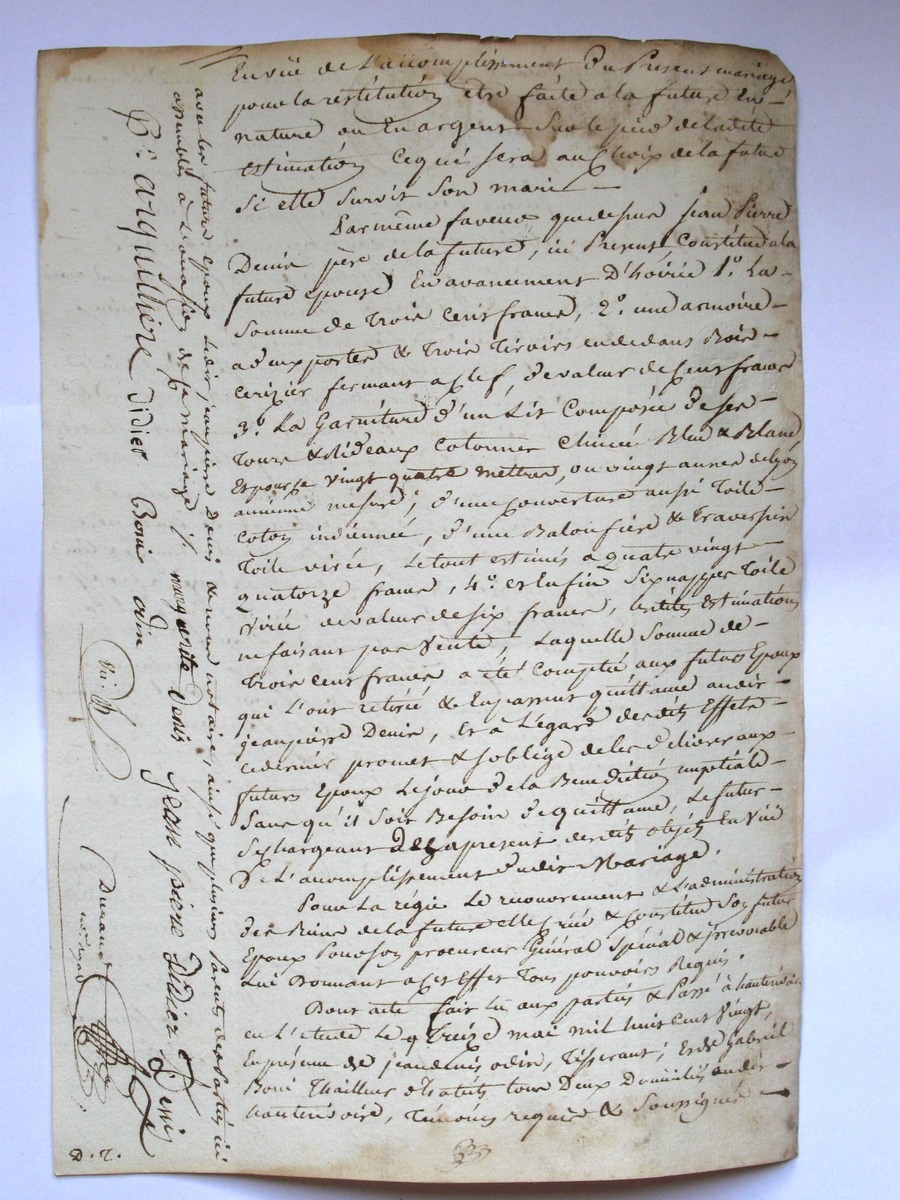 En vüe de L'accomplissement Du Present mariage
pour la restitution être faite a la future En-
nature ou En argent Sur le pied de ladite
Estimation Ce qui sera au choix de la future
Si elle Survit Son mari —
Par même faveur que dessus Jean Pierre
Denis père de la future, ici Present Constitue a la
future epouse En avancement D'hoirie 1.° La-
Somme de Trois Cent francs, 2.° une armoire-
a deux portes & Trois Tiroirs en dedans Bois-
Cerizier fermant a Clef, de valeur de francs
3.° La Garniture d'un Lit Composée de ses-
Tours & Rideaux Cotonne Chinée Bleu & Blanc,
Et pour ce vingt quatre mettres, ou vingt aunes de Lyon
ancienne mesure; d'une Couverture aussi Toile-
Coton indienne, d'une & Traversin
Toile virée, Le tout estimés a quatre vingt-
quatorze francs, 4.° et Enfin Six nappes Toile
virée de valeur de six francs, lesdites Estimations
ne faisant pas Vente, Laquelle Somme de-
Trois Cent francs a été Comptée aux futurs Epoux
qui L'ont retirée & En passent quittance audit-
Jean pierre Denis, Et a L'égard desdits Effets-
Ce dernier promet & s'oblige de les délivrer aux-
futurs Epoux Le jour de la Benediction nuptiale-
Sans qu'il Soit Besoin de quittance, Le futur-
Se chargeant Dès apresent desdits objets En Vüe
De L'accomplissement dudit Mariage.
Pour La régie Le recouvrement & L'administration
des Biens de la future elle Crée & Constitue Son futur
Epoux Pour Son procureur Général Spécial & irrevocable
Lui Donnant a Cet Effet Tous pouvoirs Requis.
Dont acte fait Lu aux parties & Passé à hauterivoire
en L'etude Le Treize mai mil huit Cent Vingt,
En présence de jean denis odin, Tisserant; Et de Gabriel
Boni Thailleur d'habits tous Deux Domiciliés audit-
hauterivoire, Témoins requis & Soussignés —
avec les futurs epoux ledit jean pierre Denis & nous notaire, ainsi que plusieurs Parents des Parties ici
assemblés à L'occasion de ce mariage ./. marguerite Denis Jean pierre Didier Denis
P.re arquillière Didier Boni odin
Durand
notaire
D. T.